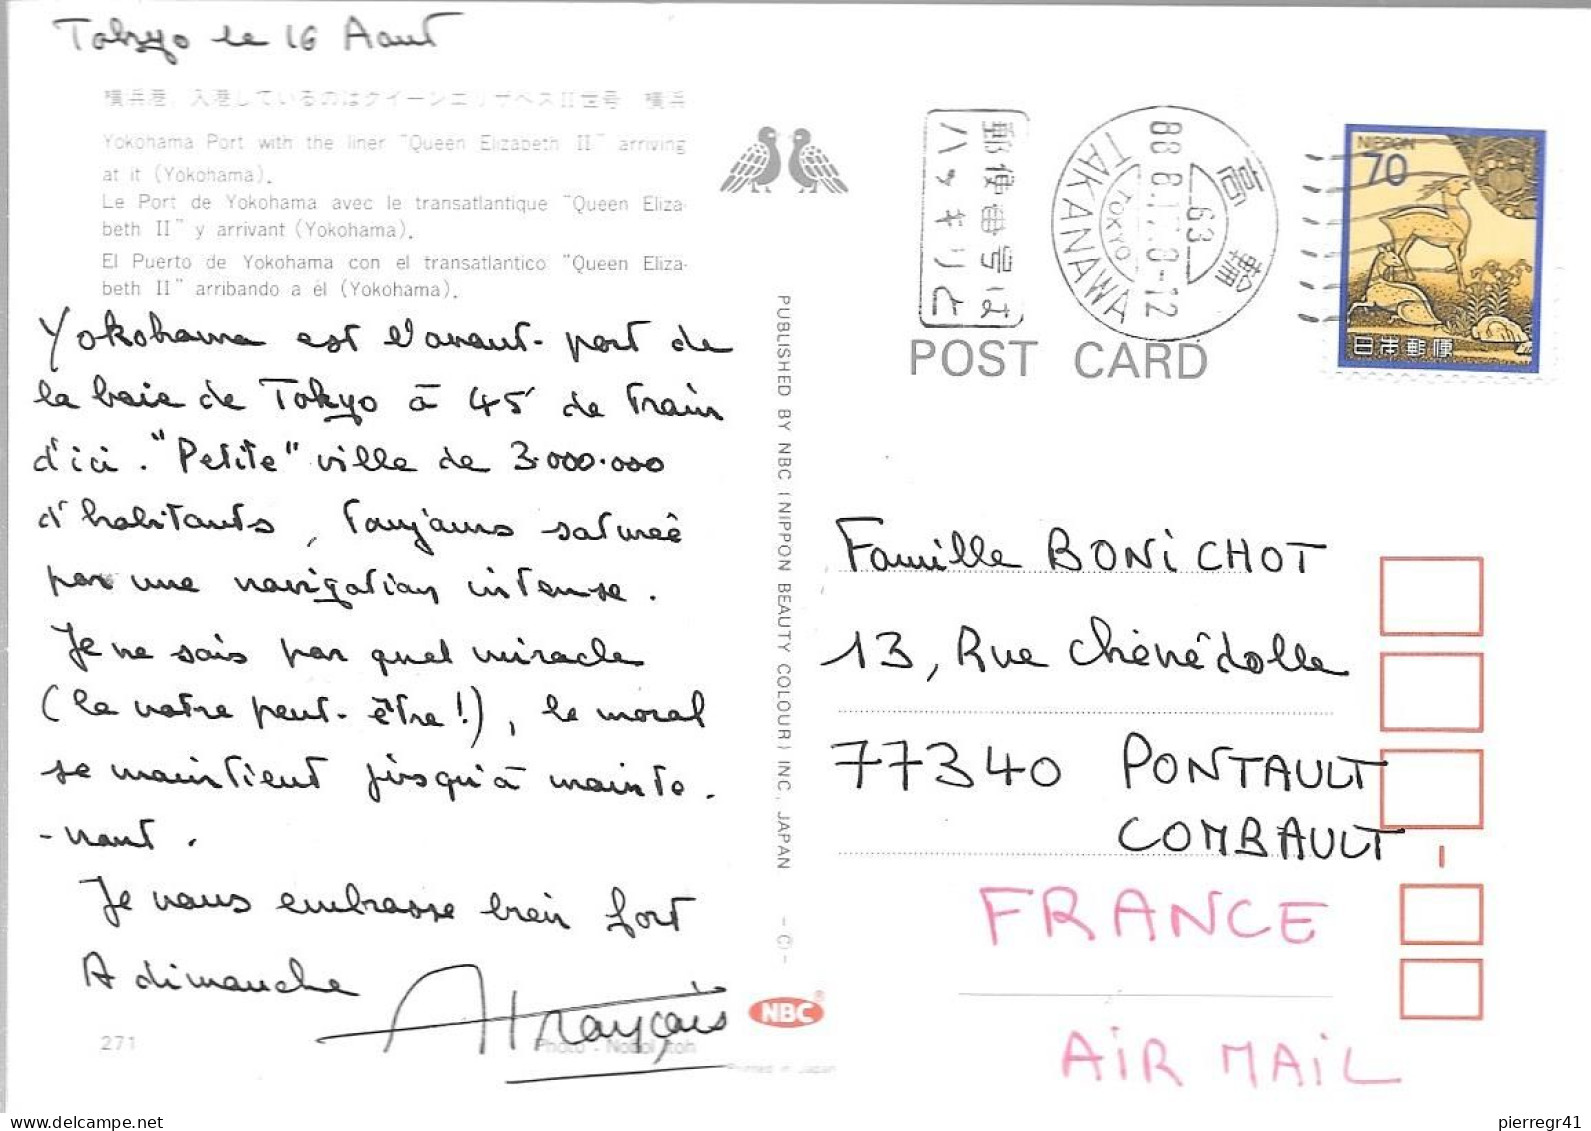 Tokyo le 16 Aout
横浜港，入港しているのはクイーンエリザベスII世号　横浜
Yokohama Port with the liner "Queen Elizabeth II" arriving
at it (Yokohama).
Le Port de Yokohama avec le transatlantique "Queen Eliza-
beth II" y arrivant (Yokohama).
El Puerto de Yokohama con el transatlantico "Queen Eliza-
beth II" arribando a él (Yokohama).
Yokohama est l'avant-port de
la baie de Tokyo à 45' de train
d'ici. "Petite" ville de 3.000.000
d'habitants, toujours saturée
par une navigation intense.
Je ne sais par quel miracle
(le notre peut-être!), le moral
se maintient jusqu'à mainte.
-nant.
Je vous embrasse bien fort
A dimanche
Français
271
Photo : Noboi Itoh
Printed in Japan
PUBLISHED BY NBC (NIPPON BEAUTY COLOUR) INC., JAPAN -C)-
NBC®
郵便番号は
ハッキリと
高輪
63
88.8.17.8-12
TOKYO
TAKANAWA
NIPPON
70
日本郵便
POST CARD
Famille BONICHOT
13, Rue Chênedollé
77340 PONTAULT
COMBAULT
FRANCE
AIR MAIL
pierregr41